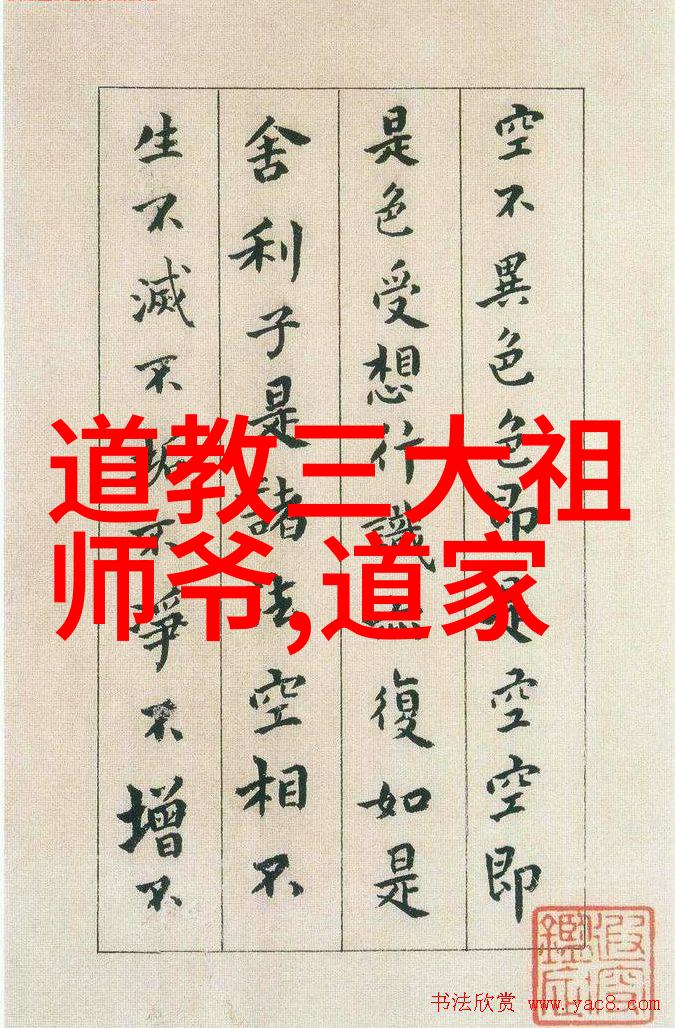 空不異色色即是空空即
是色受想行識亦復如是
舍利子是諸法空相不
生不滅不垢不淨不增不
道教三大祖
师爷,道家
书法欣赏 www.yac8.com